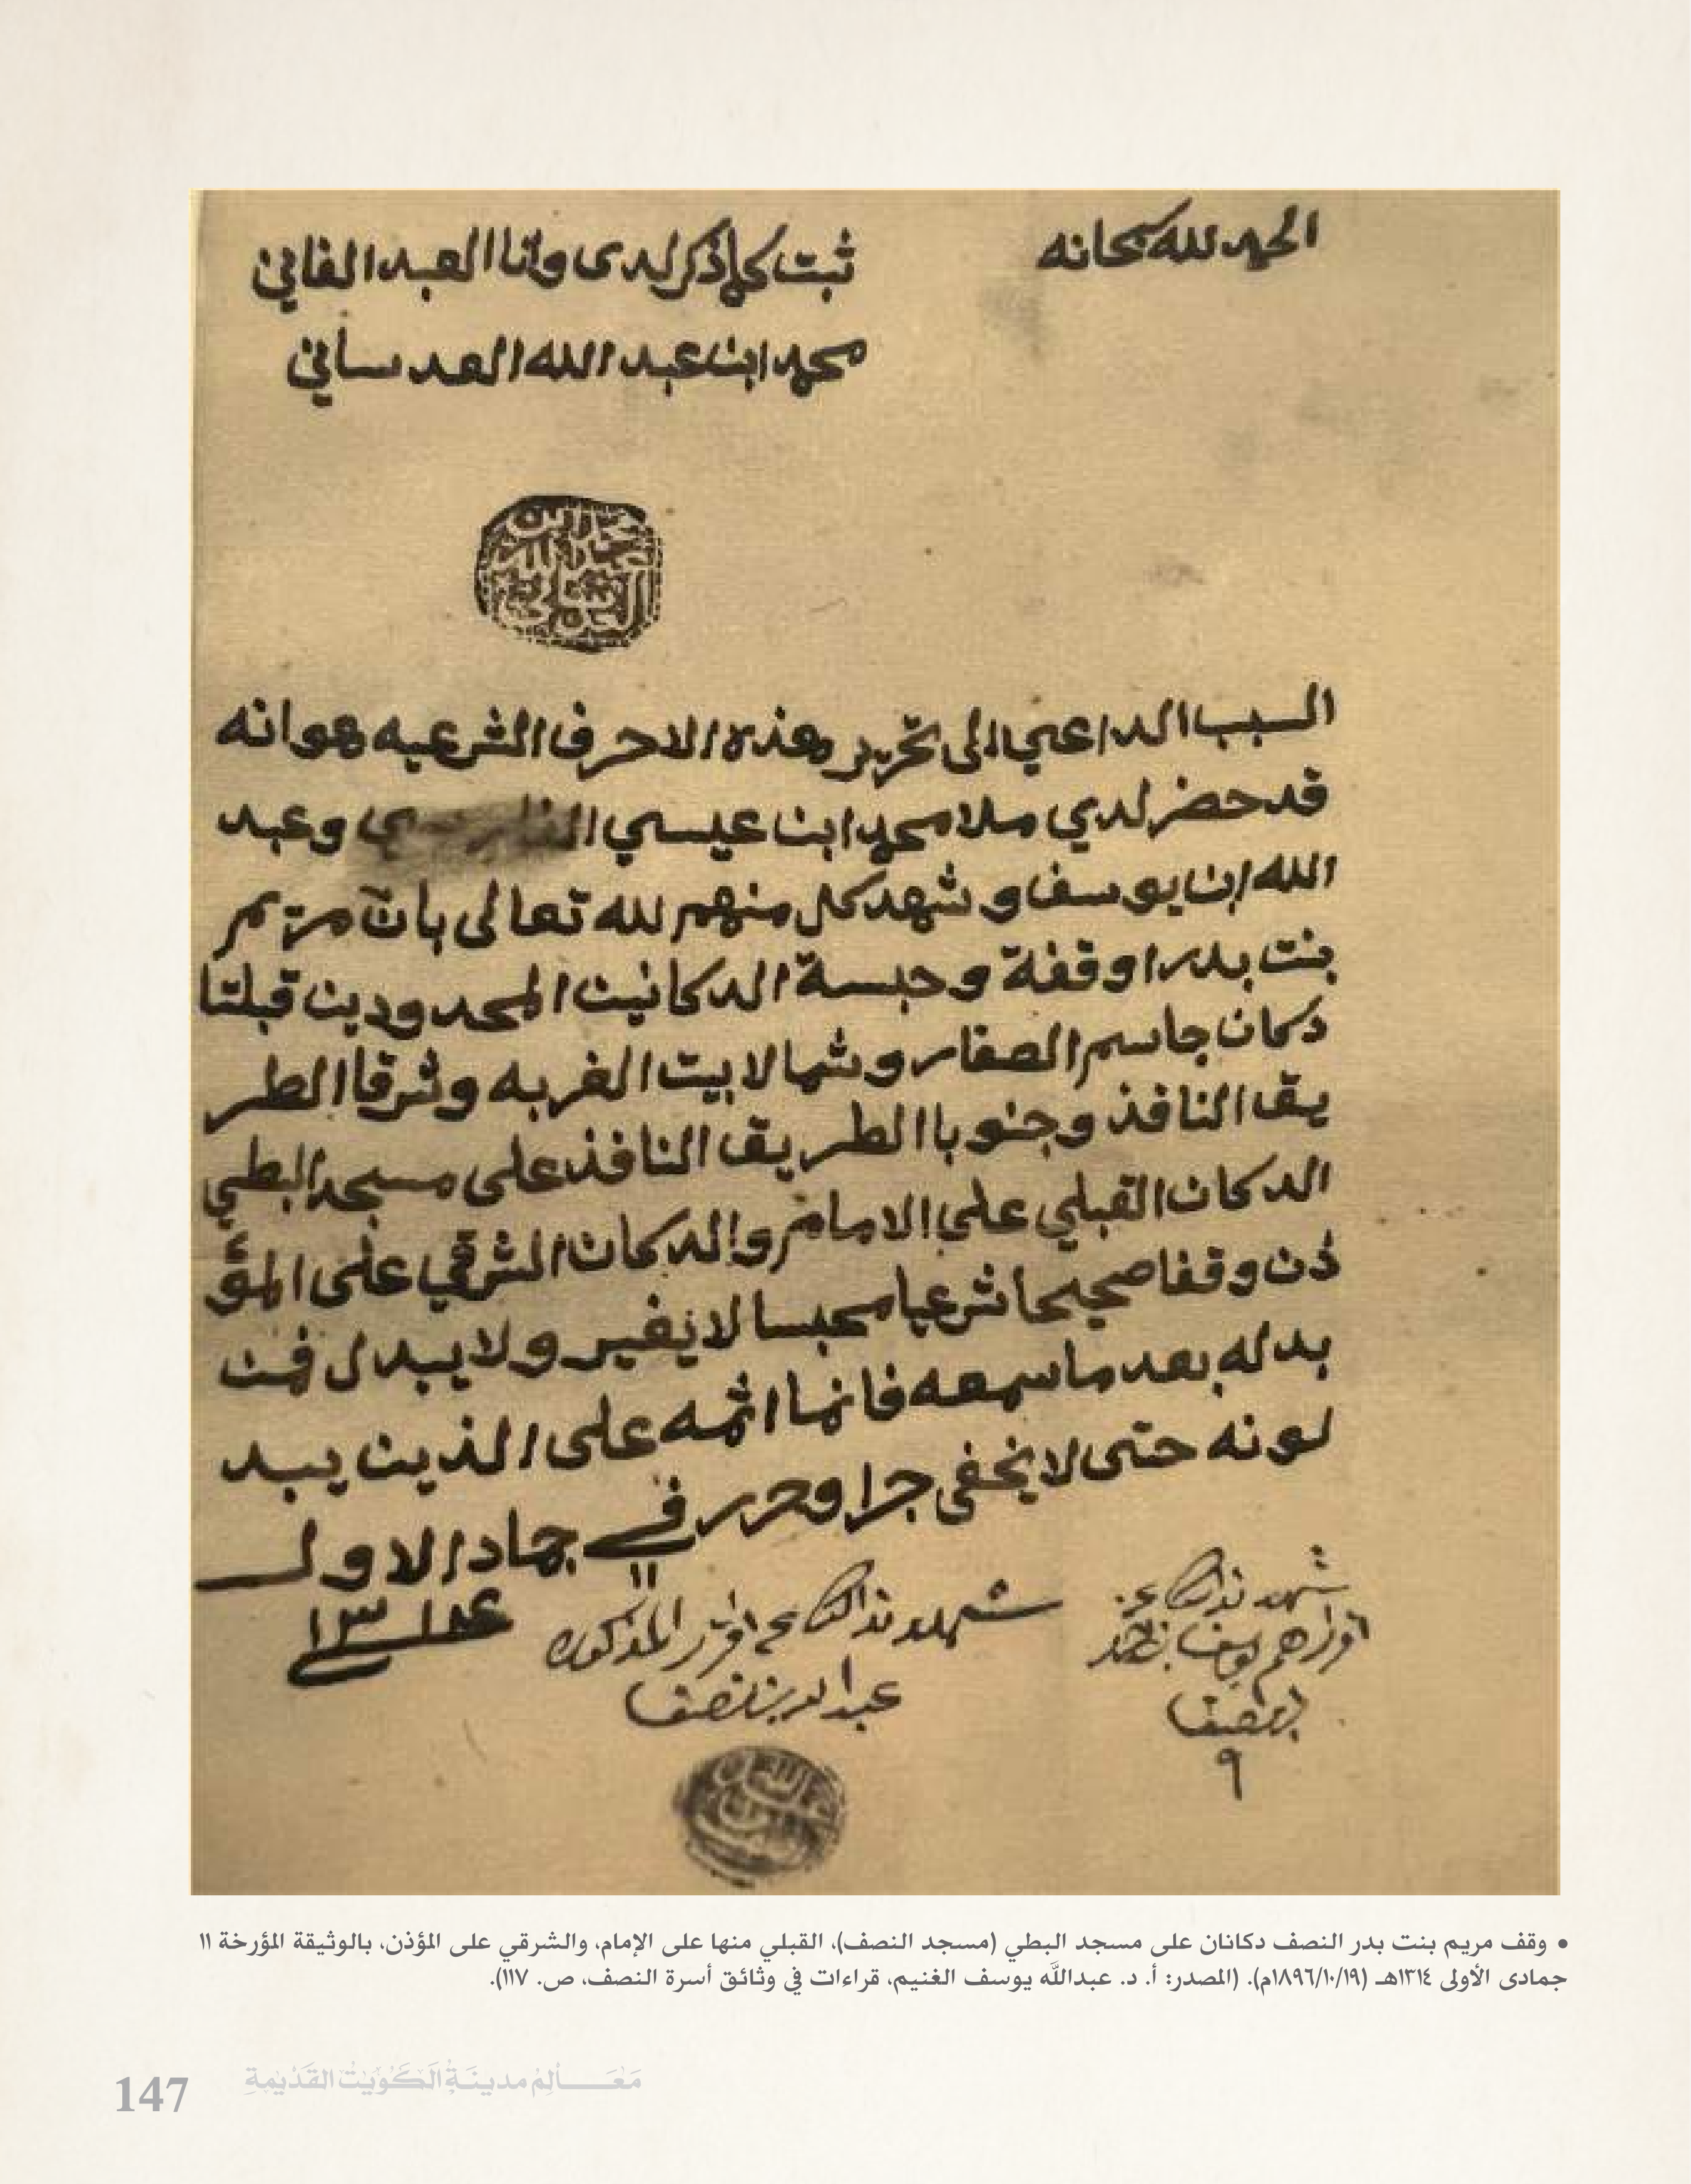 الحمد لله سبحانه
ثبت كلما ذكر لدى وانا العبد الفاني
محمد ابن عبد الله العدساني
محمد ابن
عبد الله
العدساني
السبب الداعي الى تحرير هذه الاحرف الشرعيه هو انه
قد حضر لدي ملا محمد ابن عيسي وعبد
الله ابن يوسف و شهد كل منهم لله تعالى بان مريم
بنت بدر اوقفة و حبسة الدكانين المحدودين قبلتا
دكان جاسم الصفار و شمالا بيت الغربه و شرقا الطر
يق النافذ و جنوبا الطريق النافذ على مسجد البطي
الدكان القبلي علي الامام و الدكان الشرقي على المؤ
ذن وقفا صحيحا شرعيا محبسا لا يغير ولا يبدل فمن
بدله بعد ما سمعه فانما اثمه على الذين يبد
لونه حتى لا يخفى جرا وحرر في ١١ جماد الاول
١٣١٤
شهد بذالك على
اقرارهم يوسف
النصف
٩
شهد بذالك على اقرار المذكورين
عبدالله بن نصف
• وقف مريم بنت بدر النصف دكانان على مسجد البطي (مسجد النصف)، القبلي منها على الإمام، والشرقي على المؤذن، بالوثيقة المؤرخة ١١
جمادى الأولى ١٣١٤هـ (١٨٩٦/١٠/١٩م). (المصدر: أ. د. عبدالله يوسف الغنيم، قراءات في وثائق أسرة النصف، ص. ١١٧).
147 مَعَالِم مدينَة الكُوَيْت القَدْيمة